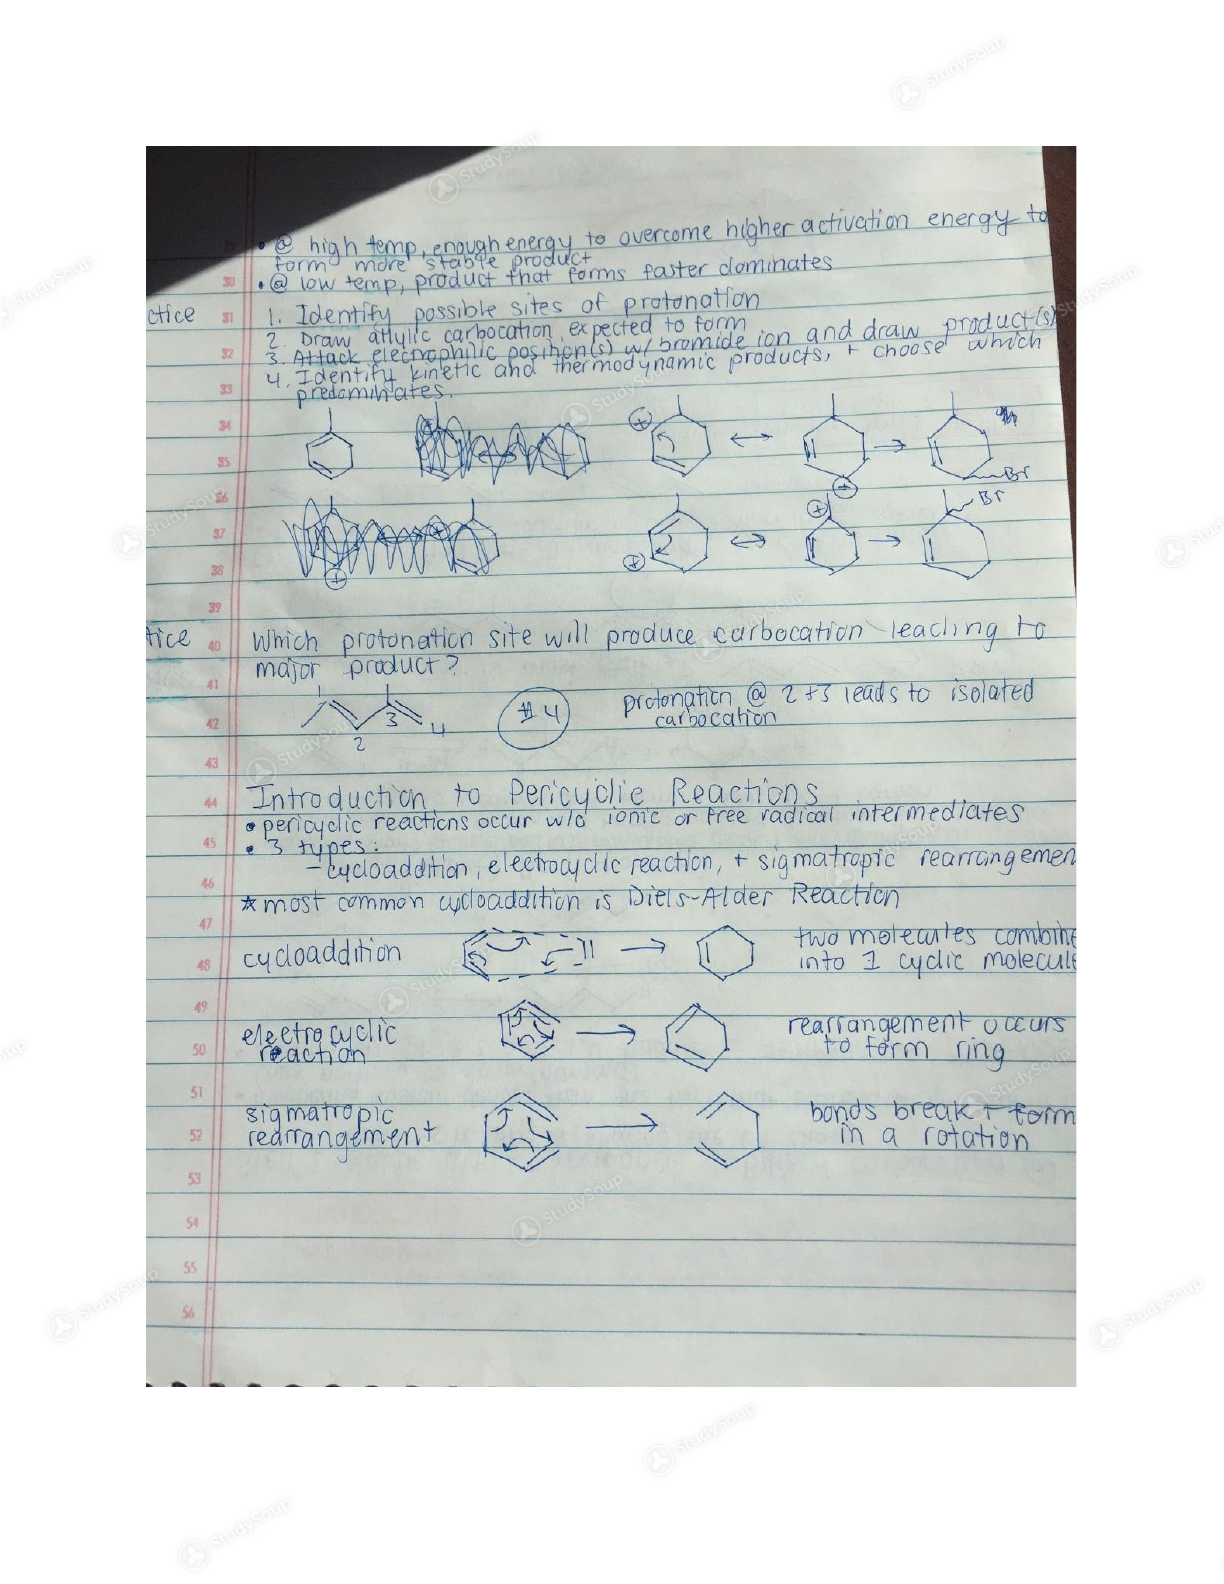 • @ high temp, enough energy to overcome higher activation energy to
form more stable product
• @ low temp, product that forms faster dominates
ctice
1. Identify possible sites of protonation
2. Draw allylic carbocation expected to form
3. Attack elecrophilic position(s) w/ bromide ion and draw product(s)
4. Identify kinetic and thermodynamic products, + choose which
predominates.
Br
Br
tice
Which protonation site will produce carbocation leading to
major product?
1 2 3 4
#4
protonation @ 2+3 leads to isolated
carbocation
Introduction to Pericyclic Reactions
• pericyclic reactions occur w/o ionic or free radical intermediates
• 3 types:
- cycloaddition, electrocyclic reaction, + sigmatropic rearrangemen
* most common cycloaddition is Diels-Alder Reaction
cycloaddition
two molecules combine
into 1 cyclic molecule
electrocyclic
reaction
rearrangement occurs
to form ring
sigmatropic
rearrangement
bonds break + form
in a rotation
30
31
32
33
34
35
36
37
38
39
40
41
42
43
44
45
46
47
48
49
50
51
52
53
54
55
56
StudySoup